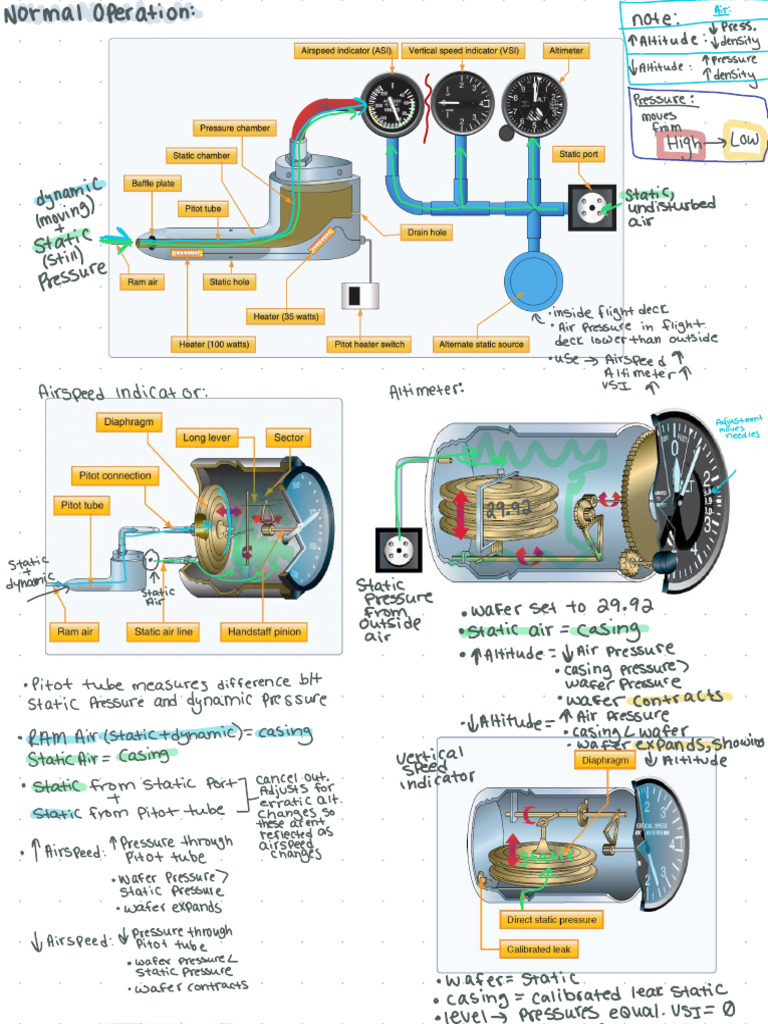 Normal Operation:
note: Air:
↑Altitude: ↓Press. ↓density
↓Altitude: ↑pressure ↑density
Pressure:
moves
from
High → Low
Airspeed indicator (ASI)
Vertical speed indicator (VSI)
Altimeter
Pressure chamber
Static chamber
Baffle plate
Pitot tube
Static port
Drain hole
Ram air
Static hole
Heater (35 watts)
Heater (100 watts)
Pitot heater switch
Alternate static source
dynamic
(moving)
+
Static
(still)
Pressure
Static,
undisturbed
air
• inside flight deck
• Air Pressure in flight
deck lower than outside
• use → Airspeed ↑
Altimeter ↑
VSI ↑
Airspeed Indicator:
Diaphragm
Long lever
Sector
Pitot connection
Pitot tube
Static
+
dynamic
Static
Air
Ram air
Static air line
Handstaff pinion
• Pitot tube measures difference b/t
static Pressure and dynamic Pressure
• RAM Air (static+dynamic)= casing
Static Air = Casing
• Static from static Port
+
Static from Pitot tube
cancel out,
Adjusts for
erratic alt.
changes so
these arent
reflected as
airspeed
changes
• ↑Airspeed: ↑Pressure through
Pitot tube
• wafer Pressure>
static Pressure
• wafer expands
↓Airspeed: ↓Pressure through
Pitot tube
• wafer pressure<
Static Pressure
• wafer contracts
Altimeter:
Adjustment
moves
needles
29.92
ALT
Static
Pressure
from
outside
air
• wafer set to 29.92
• static air = casing
• ↑Altitude = ↓Air Pressure
• casing pressure>
wafer Pressure
• wafer contracts
• ↓Altitude= ↑Air Pressure
• casing<wafer
• wafer expands, showing
↓Altitude
vertical
speed
indicator
Diaphragm
static
VERTICAL SPEED
Direct static pressure
Calibrated leak
• wafer = static
• casing = calibrated leak static
• level → pressures equal. VSI = 0